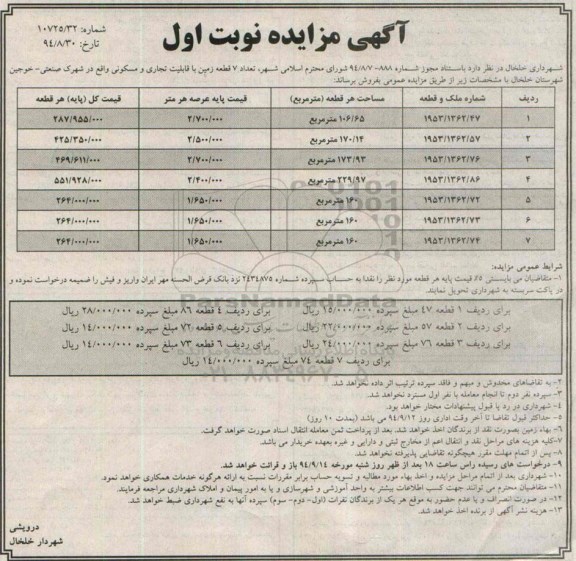 آگهی مزایده نوبت اول
شماره: ۱۰۷۲۵/۳۲
تاریخ: ۹۴/۸/۳۰
شـهرداری خلخال در نظر دارد باستناد مجوز شـماره ۸۸۸-۹۴/۸/۷ شورای محترم اسلامی شـهر، تعداد ۷ قطعه زمین با قابلیت تجاری و مسکونی واقع در شهرک صنعتی- خوجین
شهرستان خلخال با مشخصات زیر از طریق مزایده عمومی بفروش برساند.
ردیف شماره ملک و قطعه مساحت هر قطعه (مترمربع) قیمت پایه عرصه هر متر قیمت کل (پایه) هر قطعه
۱ ۱۹۵۳/۱۳۶۲/۴۷ ۱۰۶/۶۵ مترمربع ۲/۷۰۰/۰۰۰ ۲۸۷/۹۵۵/۰۰۰
۲ ۱۹۵۳/۱۳۶۲/۵۷ ۱۷۰/۱۴ مترمربع ۲/۵۰۰/۰۰۰ ۴۲۵/۳۵۰/۰۰۰
۳ ۱۹۵۳/۱۳۶۲/۷۶ ۱۷۳/۹۳ مترمربع ۲/۷۰۰/۰۰۰ ۴۶۹/۶۱۱/۰۰۰
۴ ۱۹۵۳/۱۳۶۲/۸۶ ۲۲۹/۹۷ مترمربع ۲/۴۰۰/۰۰۰ ۵۵۱/۹۲۸/۰۰۰
۵ ۱۹۵۳/۱۳۶۲/۷۲ ۱۶۰ مترمربع ۱/۶۵۰/۰۰۰ ۲۶۴/۰۰۰/۰۰۰
۶ ۱۹۵۳/۱۳۶۲/۷۳ ۱۶۰ مترمربع ۱/۶۵۰/۰۰۰ ۲۶۴/۰۰۰/۰۰۰
۷ ۱۹۵۳/۱۳۶۲/۷۴ ۱۶۰ مترمربع ۱/۶۵۰/۰۰۰ ۲۶۴/۰۰۰/۰۰۰
شرایط عمومی مزایده:
۱- متقاضیان می بایستی ۵٪ قیمت پایه هر قطعه مورد نظر را نقدا به حساب سـپرده شـماره ۲۴۳۴۸۷۵ نزد بانک قرض الحسنه مهر ایران واریز و فیش را ضمیمه درخواست نموده و
در پاکت سربسته به شهرداری تحویل نمایند.
برای ردیف ۱ قطعه ۴۷ مبلغ سپرده ۱۵/۰۰۰/۰۰۰ ریال برای ردیف ۴ قطعه ۸۶ مبلغ سپرده ۲۸/۰۰۰/۰۰۰ ریال
برای ردیف ۲ قطعه ۵۷ مبلغ سپرده ۲۲/۰۰۰/۰۰۰ ریال برای ردیف ۵ قطعه ۷۲ مبلغ سپرده ۱۴/۰۰۰/۰۰۰ ریال
برای ردیف ۳ قطعه ۷۶ مبلغ سپرده ۲۴/۰۰۰/۰۰۰ ریال برای ردیف ۶ قطعه ۷۳ مبلغ سپرده ۱۴/۰۰۰/۰۰۰ ریال
برای ردیف ۷ قطعه ۷۴ مبلغ سپرده ۱۴/۰۰۰/۰۰۰ ریال
۲- به تقاضاهای مخدوش و مبهم و فاقد سپرده ترتیب اثر داده نخواهد شد.
۳- سپرده نفر دوم تا انجام معامله با نفر اول مسترد نخواهد شد.
۴- شهرداری در رد یا قبول پیشنهادات مختار خواهد بود.
۵- حداکثر قبول تقاضا تا آخر وقت اداری روز ۹۴/۹/۱۲ می باشد (بمدت ۱۰ روز)
۶- بهاء زمین بصورت نقد از برندگان اخذ خواهد شد. بعد از پرداخت ثمن معامله انتقال اسناد صورت خواهد گرفت.
۷-کلیه هزینه های مراحل نقد و انتقال اعم از مخارج ثبتی و دارایی و غیره بعهده خریدار می باشد.
۸- پس از اتمام مهلت مقرر هیچگونه تقاضایی پذیرفته نخواهد شد.
۹- درخواست های رسیده راس ساعت ۱۸ بعد از ظهر روز شنبه مورخه ۹۴/۹/۱۴ باز و قرائت خواهد شد.
۱۰- شهرداری بعد از اتمام مراحل مزایده و اخذ بهاء مورد مطالبه و تسویه حساب برابر مقررات نسبت به ارائه هرگونه خدمات همکاری خواهد نمود.
۱۱- متقاضیان محترم می توانند جهت کسب اطلاعات بیشتر به واحد آموزشی و شهرسازی و یا به امور پیمان و املاک شهرداری مراجعه فرمایند.
۱۲- در صورت انصراف و یا عدم حضور به موقع هر یک از برندگان نفرات (اول- دوم- سوم) سپرده آنها به نفع شهرداری ضبط خواهد شد.
۱۳- هزینه نشر آگهی از برنده اخذ خواهد شد.
درویشی
شهردار خلخال
ParsNamadData